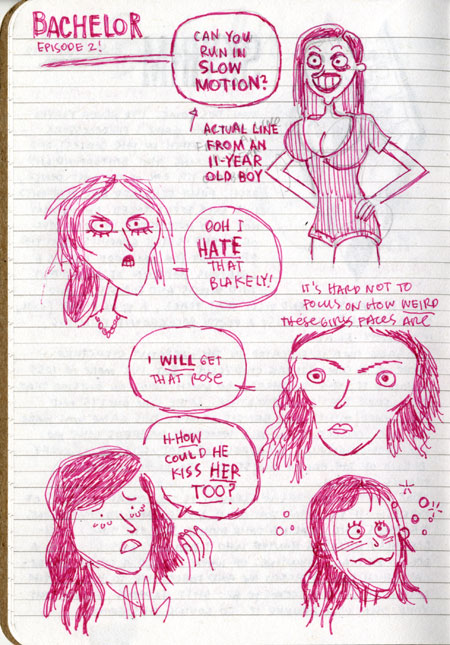 BACHELOR
EPISODE 2!
CAN YOU
RUN IN
SLOW
MOTION?
ACTUAL LINE
FROM AN
11-YEAR
OLD BOY
OOH I
HATE
THAT
BLAKELY!
IT'S HARD NOT TO
FOCUS ON HOW WEIRD
THESE GIRLS FACES ARE
I WILL GET
THAT ROSE
H-HOW
COULD HE
KISS HER
TOO?